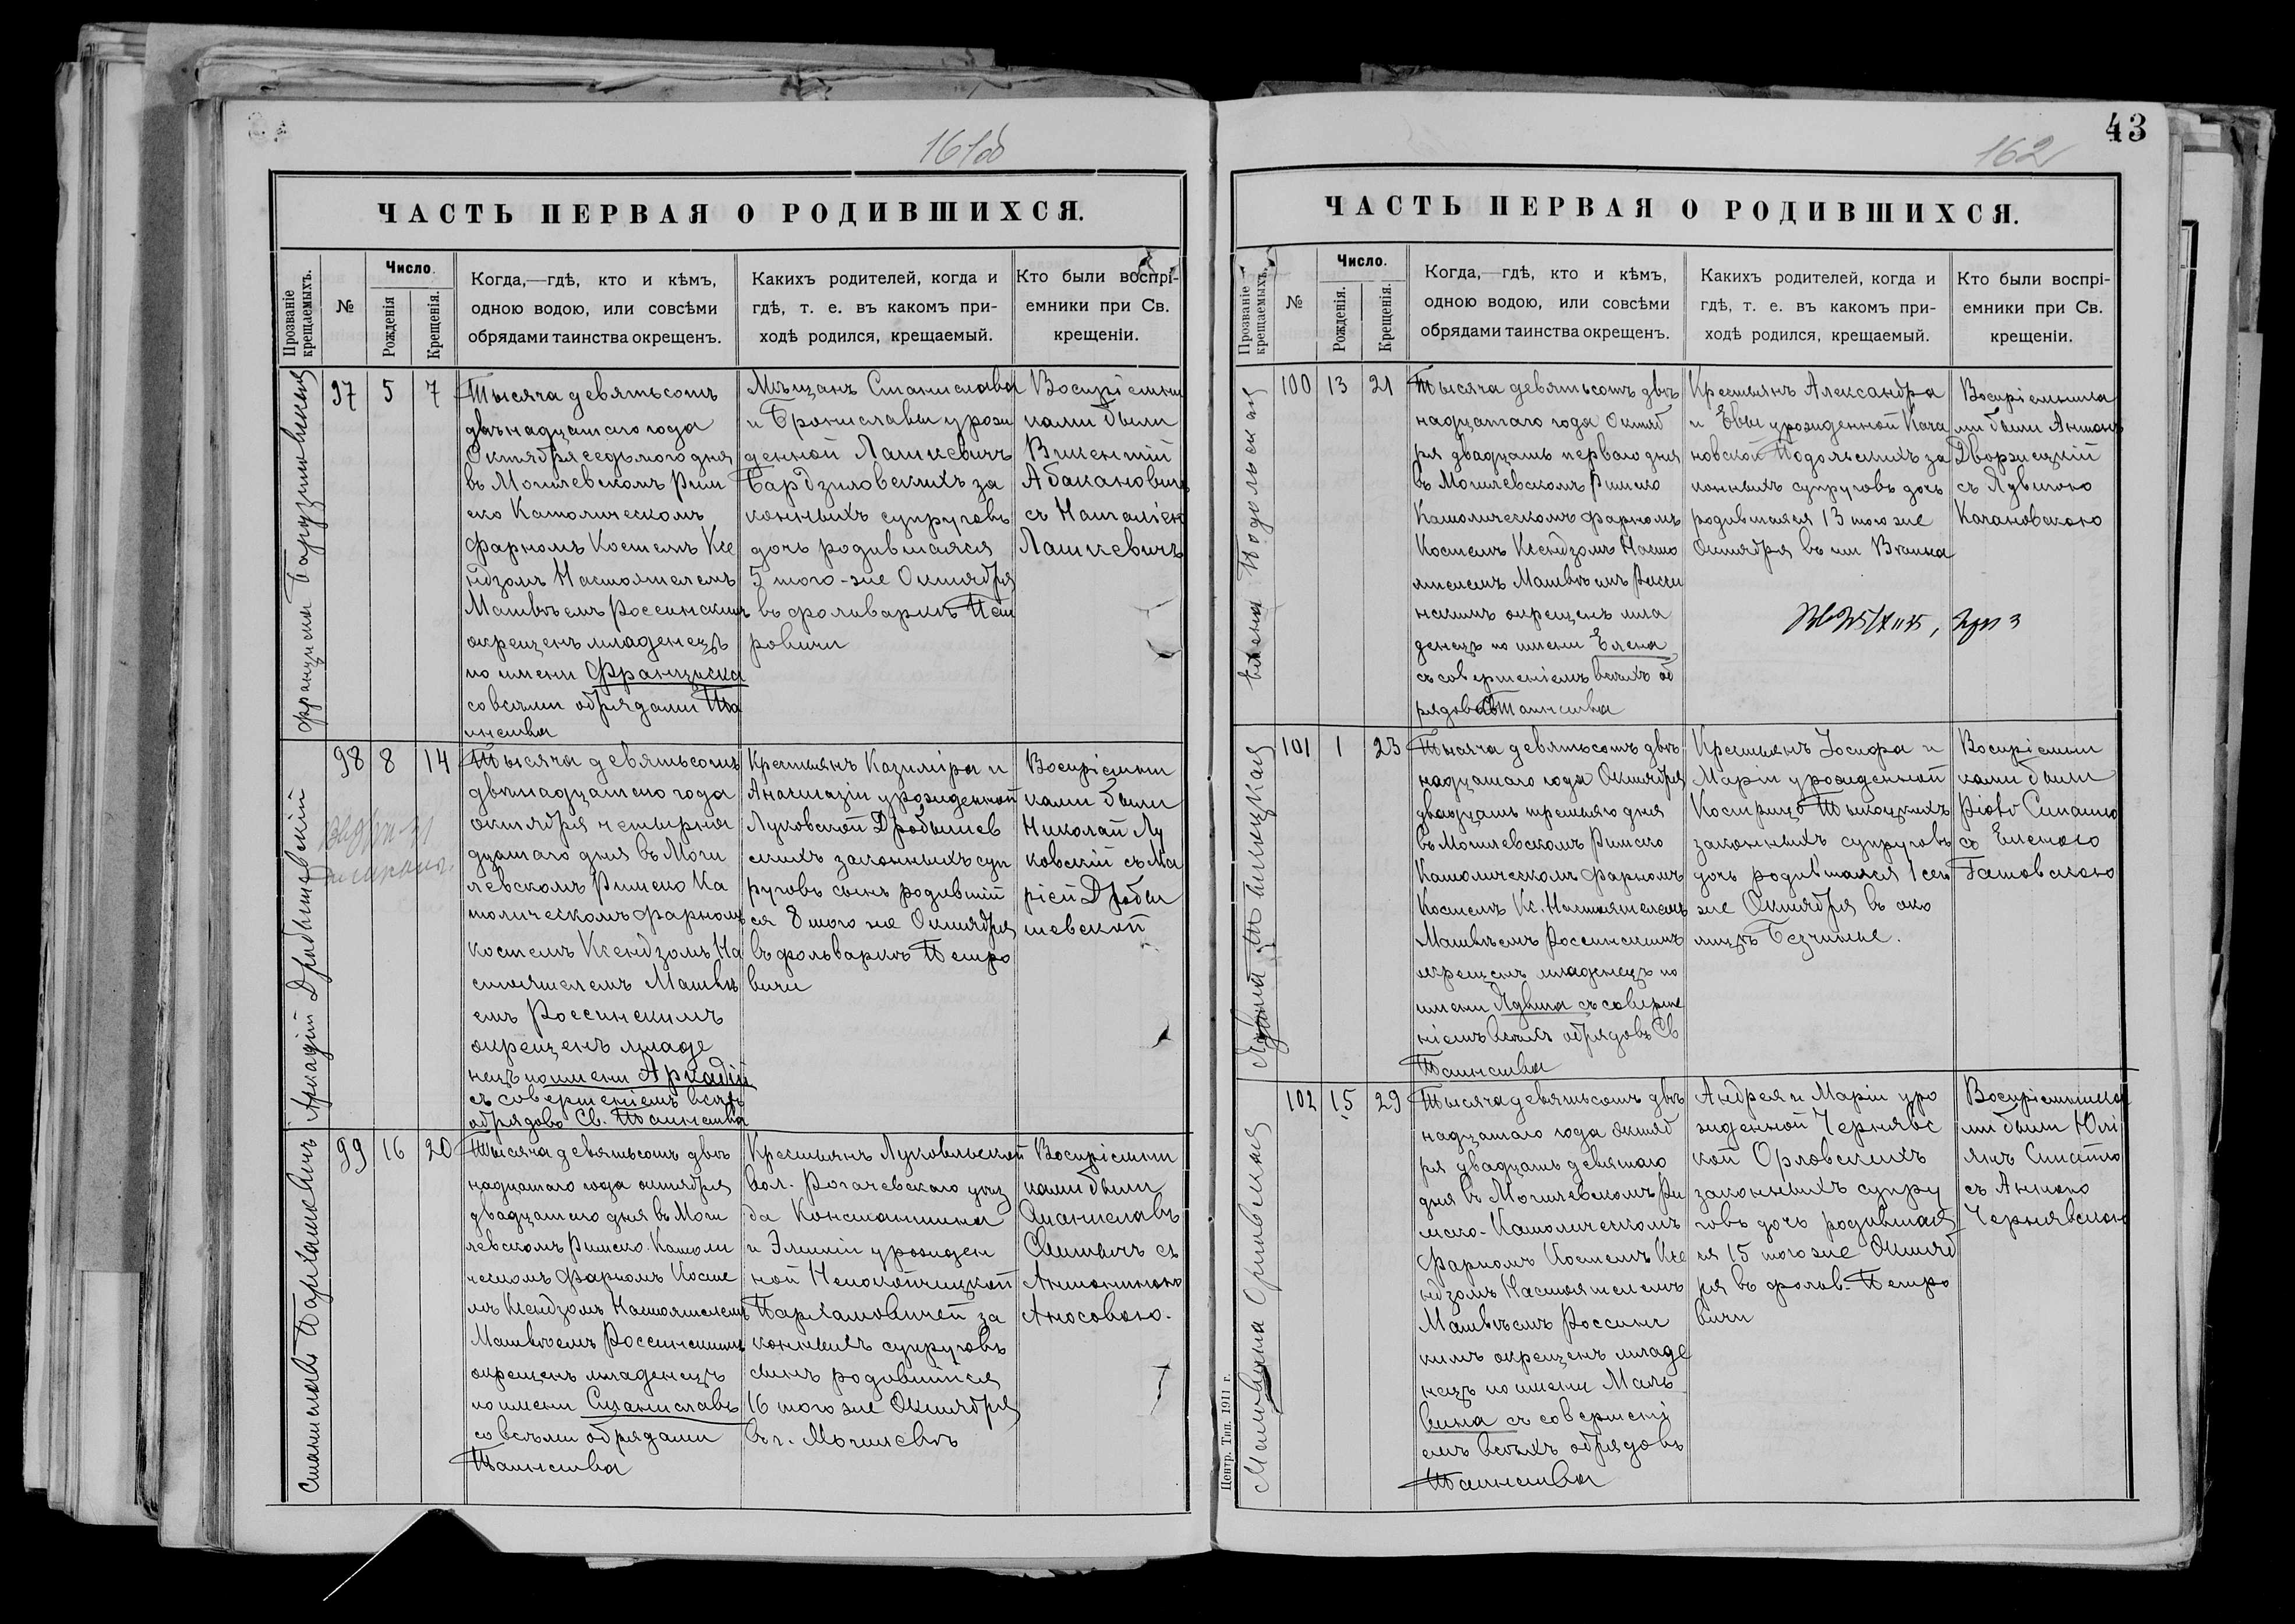 161об
ЧАСТЬ ПЕРВАЯ О РОДИВШИХСЯ.
Прозваніе крещаемыхъ.
№
Число.
Рожденія
Крещенія.
Когда,—гдѣ, кто и кѣмъ,
одною водою, или совсѣми
обрядами таинства окрещенъ.
Какихъ родителей, когда и
гдѣ, т. е. въ какомъ при-
ходѣ родился, крещаемый.
Кто были воспрі-
емники при Св.
крещеніи.
97
5
7
Тысяча девятьсотъ
двѣнадцатаго года
Октября седьмого дня
въ Могилевскомъ Рим
ско Католическомъ
фарномъ Костелѣ Ксе
ндзомъ Настоятелемъ
Матвѣемъ Россинскимъ
окрещенъ младенецъ
по имени Франциска
со всѣми обрядами Та
инства
Мѣщанъ Станислава
и Брониславы урож
денной Лашкевичъ
за
конныхъ супруговъ
дочь родившаяся
5 того-же Октября
въ фольваркѣ Пет
ровичи
Воспріемни
ками были
Викентій
Абакановичъ
съ Наталіею
Лашкевичъ
Аркадій Дробышевскій
98
8
14
Тысяча девятьсотъ
двѣнадцатаго года
октября четырна
дцатаго дня въ Моги
левскомъ Римско Ка
толическомъ фарномъ
костелѣ Ксендзомъ На
стоятелемъ Матвѣ
емъ Россинскимъ
окрещенъ младе
нецъ по имени Аркадій
съ совершеніемъ всѣхъ
обрядовъ Св. Таинства
Крестьянъ Казиміра и
Анастазіи урожденной
Луковской Дробышев
скихъ законныхъ суп
руговъ сынъ родившій
ся 8 того же Октября
въ фольваркѣ Петро
вичи
Воспріемни
ками были
Николай Лу
ковскій съ Ма
ріей Дробы
шевской
99
16
20
Тысяча девятьсотъ двѣ
надцатаго года октября
двадцатаго дня въ Моги
левскомъ Римско-Католи
ческомъ фарномъ Косте
лѣ Ксендзомъ Настоятелемъ
Матвѣемъ Россинскимъ
окрещенъ младенецъ
по имени Станиславъ
со всѣми обрядами
Таинства
Крестьянъ
вол. Рогачевскаго уѣз
да Константина
и Эмиліи урожден
ной
за
конныхъ супруговъ
сынъ родившійся
16 того же Октября
въ г. Могилевѣ
Воспріемни
ками были
Станиславъ
съ
Антониною
Аносовою.
162
43
ЧАСТЬ ПЕРВАЯ О РОДИВШИХСЯ.
Прозваніе крещаемыхъ.
№
Число.
Рожденія.
Крещенія.
Когда,—гдѣ, кто и кѣмъ,
одною водою, или совсѣми
обрядами таинства окрещенъ.
Какихъ родителей, когда и
гдѣ, т. е. въ какомъ при-
ходѣ родился, крещаемый.
Кто были воспрі-
емники при Св.
крещеніи.
Елена Подольская
100
13
21
Тысяча девятьсотъ двѣ
надцатаго года Октяб
ря двадцать перваго дня
въ Могилевскомъ Римско
Католическомъ фарномъ
Костелѣ Ксендзомъ Насто
ятелемъ Матвѣемъ Росси
нскимъ окрещенъ мла
денецъ по имени Елена
съ совершеніемъ всѣхъ об
рядовъ Таинства
Крестьянъ Александра
и Евы урожденной Кача
новской Подольскихъ за
конныхъ супруговъ дочь
родившаяся 13 того же
Октября въ
Воспріемника
ми были Антонъ
Дворжецкій
съ Ядвигою
Качановскою
101
1
23
Тысяча девятьсотъ двѣ
надцатаго года Октября
двадцать третьяго дня
въ Могилевскомъ Римско
Католическомъ фарномъ
Костелѣ Кс. Настоятелемъ
Матвѣемъ Россинскимъ
окрещенъ младенецъ по
имени Ядвига съ соверше
ніемъ всѣхъ обрядовъ Св
Таинства
Крестьянъ Іосифа и
Маріи урожденной
законныхъ супруговъ
дочь родившаяся 1 сего
же Октября въ око
лицѣ
Воспріемни
ками были
съ Еленою
102
15
29
Тысяча девятьсотъ двѣ
надцатаго года октяб
ря двадцать девятаго
дня въ Могилевскомъ Ри
мско-Католическомъ
Фарномъ Костелѣ Ксе
ндзомъ Настоятелемъ
Матвѣемъ Россинс
кимъ окрещенъ младе
нецъ по имени Маль
вина съ совершені
емъ всѣхъ обрядовъ
Таинства
Андрея и Маріи уро
жденной Чернявс
кой Орловскихъ
законныхъ супру
говъ дочь родившая
ся 15 того же Октяб
ря въ фольв. Петро
вичи
Воспріемника
ми были Юлі
янъ
съ Анною
Чернявскою
Центр. Тип. 1911 г.